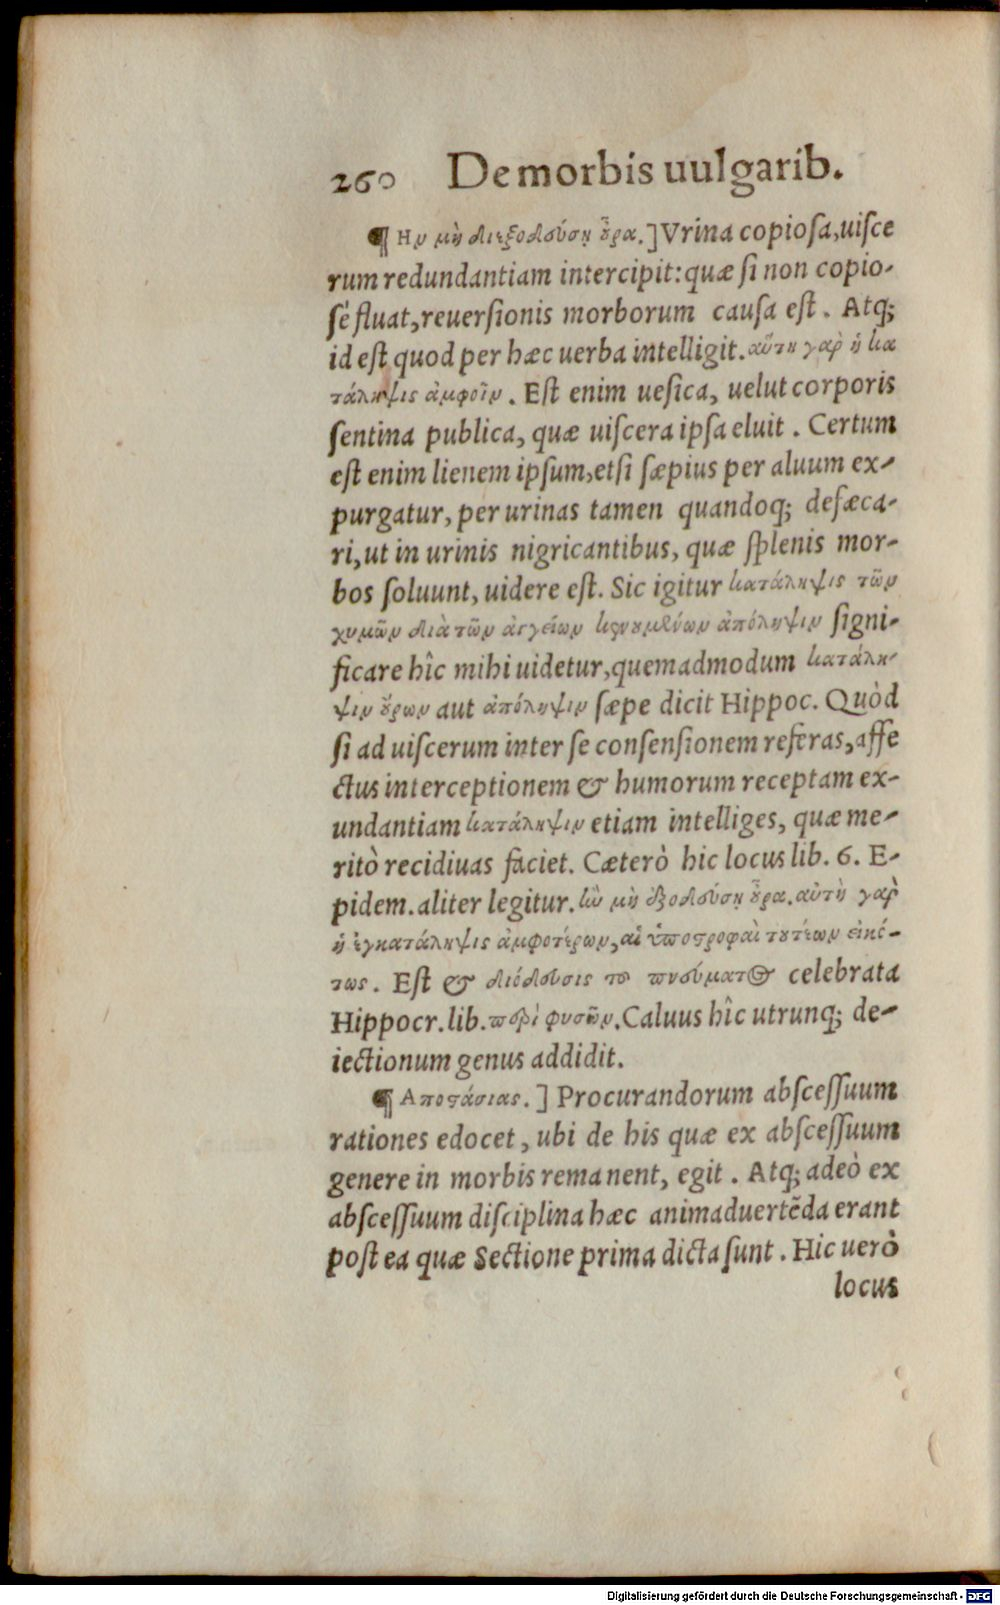 260 De morbis uulgarib.
¶ Ην μὴ διεξοδεύσῃ οὖρα.] Vrina copiosa, uisce
rum redundantiam intercipit: quæ si non copio-
sè fluat, reuersionis morborum causa est. Atq;
id est quod per hæc uerba intelligit. αὕτη γὰρ ἡ κα
τάληψις ἀμφοῖν. Est enim uesica, uelut corporis
sentina publica, quæ uiscera ipsa eluit. Certum
est enim lienem ipsum, etsi sæpius per aluum ex-
purgatur, per urinas tamen quandoq; defæca-
ri, ut in urinis nigricantibus, quæ splenis mor-
bos soluunt, uidere est. Sic igitur κατάληψις τῶν
χυμῶν διὰ τῶν ἀγγείων κενουμένων ἀπόληψιν signi-
ficare hîc mihi uidetur, quemadmodum κατάλη-
ψιν οὔρων aut ἀπόληψιν sæpe dicit Hippoc. Quòd
si ad uiscerum inter se consensionem referas, affe
ctus interceptionem & humorum receptam ex-
undantiam κατάληψιν etiam intelliges, quæ me-
ritò recidiuas faciet. Cæterò hic locus lib. 6. E-
pidem. aliter legitur. ἢν μὴ ἐξοδεύσῃ οὖρα. αὐτὴ γὰρ
ἡ ἐγκατάληψις ἀμφοτέρων, αἱ ὑποστροφαὶ τουτέων εἰκό-
τως. Est & διόδευσις τοῦ πνεύματος celebrata
Hippocr. lib. περὶ φυσῶν. Caluus hîc utrunq; de-
iectionum genus addidit.
¶ Αποστάσιας.] Procurandorum abscessuum
rationes edocet, ubi de his quæ ex abscessuum
genere in morbis remanent, egit. Atq; adeò ex
abscessuum disciplina hæc animaduertẽda erant
post ea quæ Sectione prima dicta sunt. Hic uerò
locus
Digitalisierung gefördert durch die Deutsche Forschungsgemeinschaft - DFG